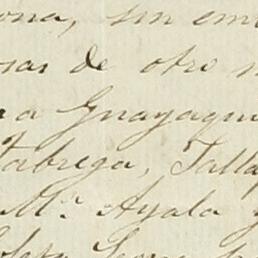 ona, sin em
osas de otro
a Guayaqui
Fabrega, Talla
M.ª Ayala y